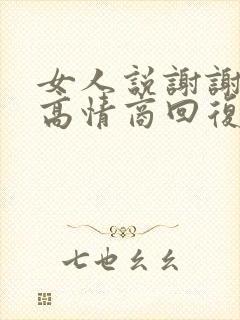 女人説謝謝
高情商回復
七也幺幺